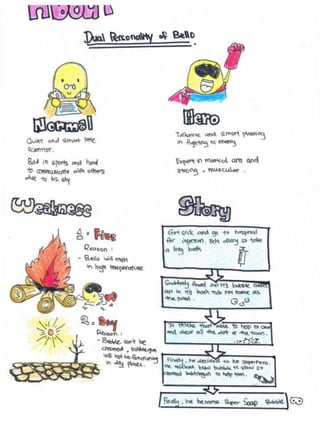 About
Dual Personality of Bello
Normal
Hero
Quiet and smart little
scientist.
Bad in sports and hard
to communicate with others
due to his shy
Talkative and smart planning
in fighting to enemy
Expert in martial arts and
strong , muscular .
Weakness
Story
1. Fire
Reason :
- Bello will melt
in high temperature
2. Dry
Reason :
- Bubble can't be
created , bubblegun
will not be functioning
in dry places.
Get sick and go to hospital
for injection. Felt dizzy so take
a long bath.
Suddenly found out his bubble
out in his bath tub not same as
the usual .
It thinks that able to help to clean
and clear all the dirt at the town.
Finally , he decided to be superhero.
He
created bubblegun to help him.
Finally , he become Super Soap Bubble